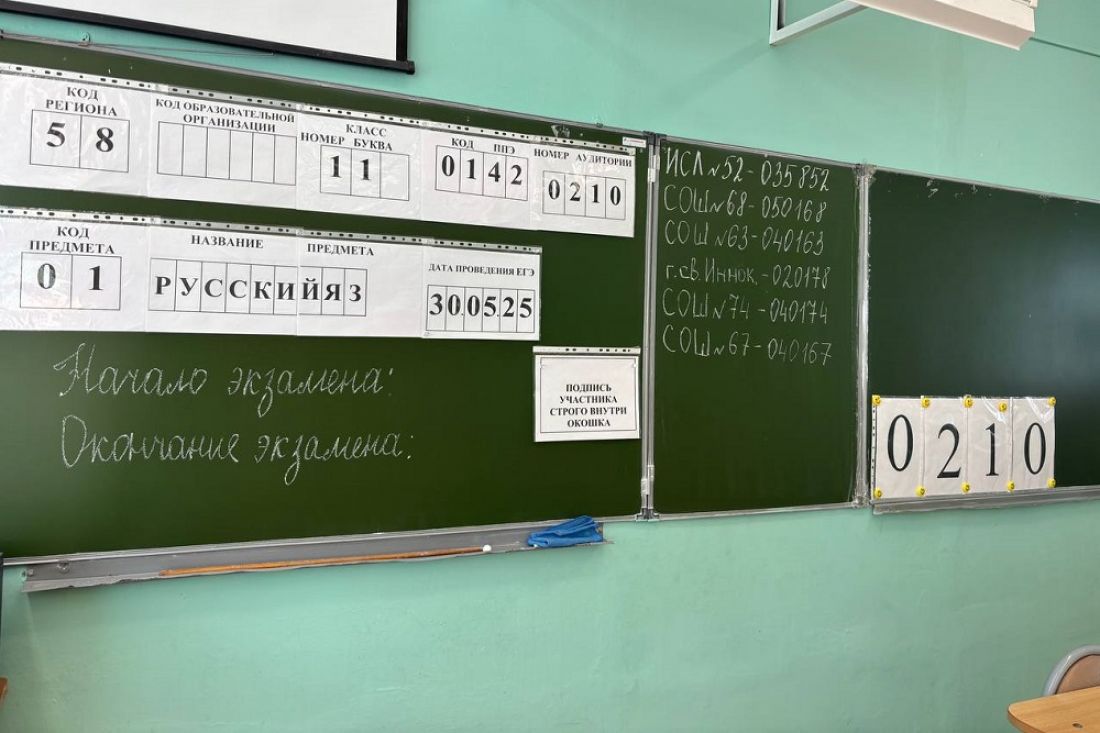 КОД РЕГИОНА
58
КОД ОБРАЗОВАТЕЛЬНОЙ ОРГАНИЗАЦИИ
КЛАСС
НОМЕР БУКВА
11
КОД ППЭ
0142
НОМЕР АУДИТОРИИ
0210
КОД ПРЕДМЕТА
01
НАЗВАНИЕ ПРЕДМЕТА
РУССКИЙЯЗ
ДАТА ПРОВЕДЕНИЯ ЕГЭ
30.05.25
Начало экзамена:
Окончание экзамена:
ПОДПИСЬ
УЧАСТНИКА
СТРОГО ВНУТРИ
ОКОШКА
ИСЛ №52-035852
СОШ №68-050168
СОШ №63-040163
г.св.Иннок.-020178
СОШ №74-040174
СОШ №67-040167
0210